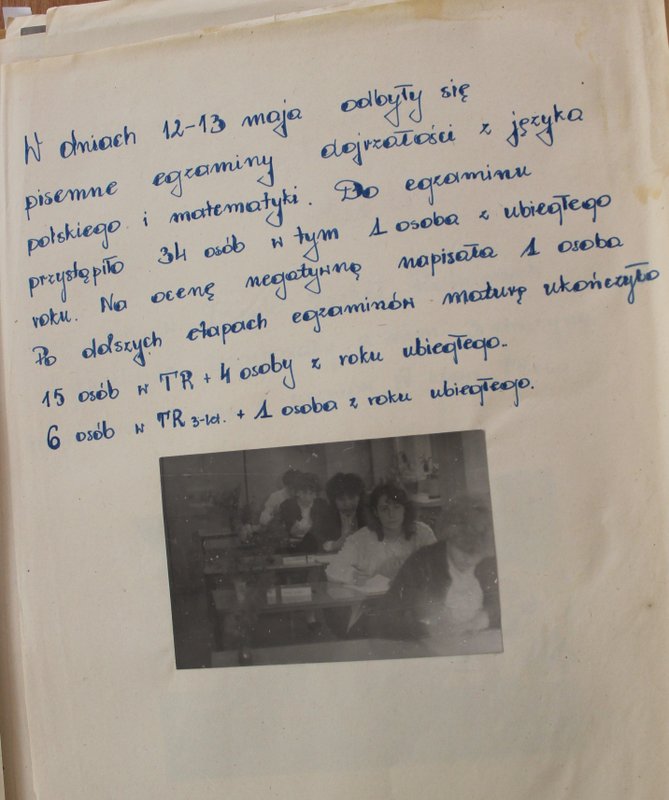 W dniach 12-13 maja odbyły się
pisemne egzaminy dojrzałości z języka
polskiego i matematyki. Do egzaminu
przystąpiło 34 osób w tym 1 osoba z ubiegłego
roku. Na ocenę negatywną napisała 1 osoba
Po dalszych etapach egzaminów maturę ukończyło
15 osób w TR + 4 osoby z roku ubiegłego.
6 osób w TR 3-let. + 1 osoba z roku ubiegłego.